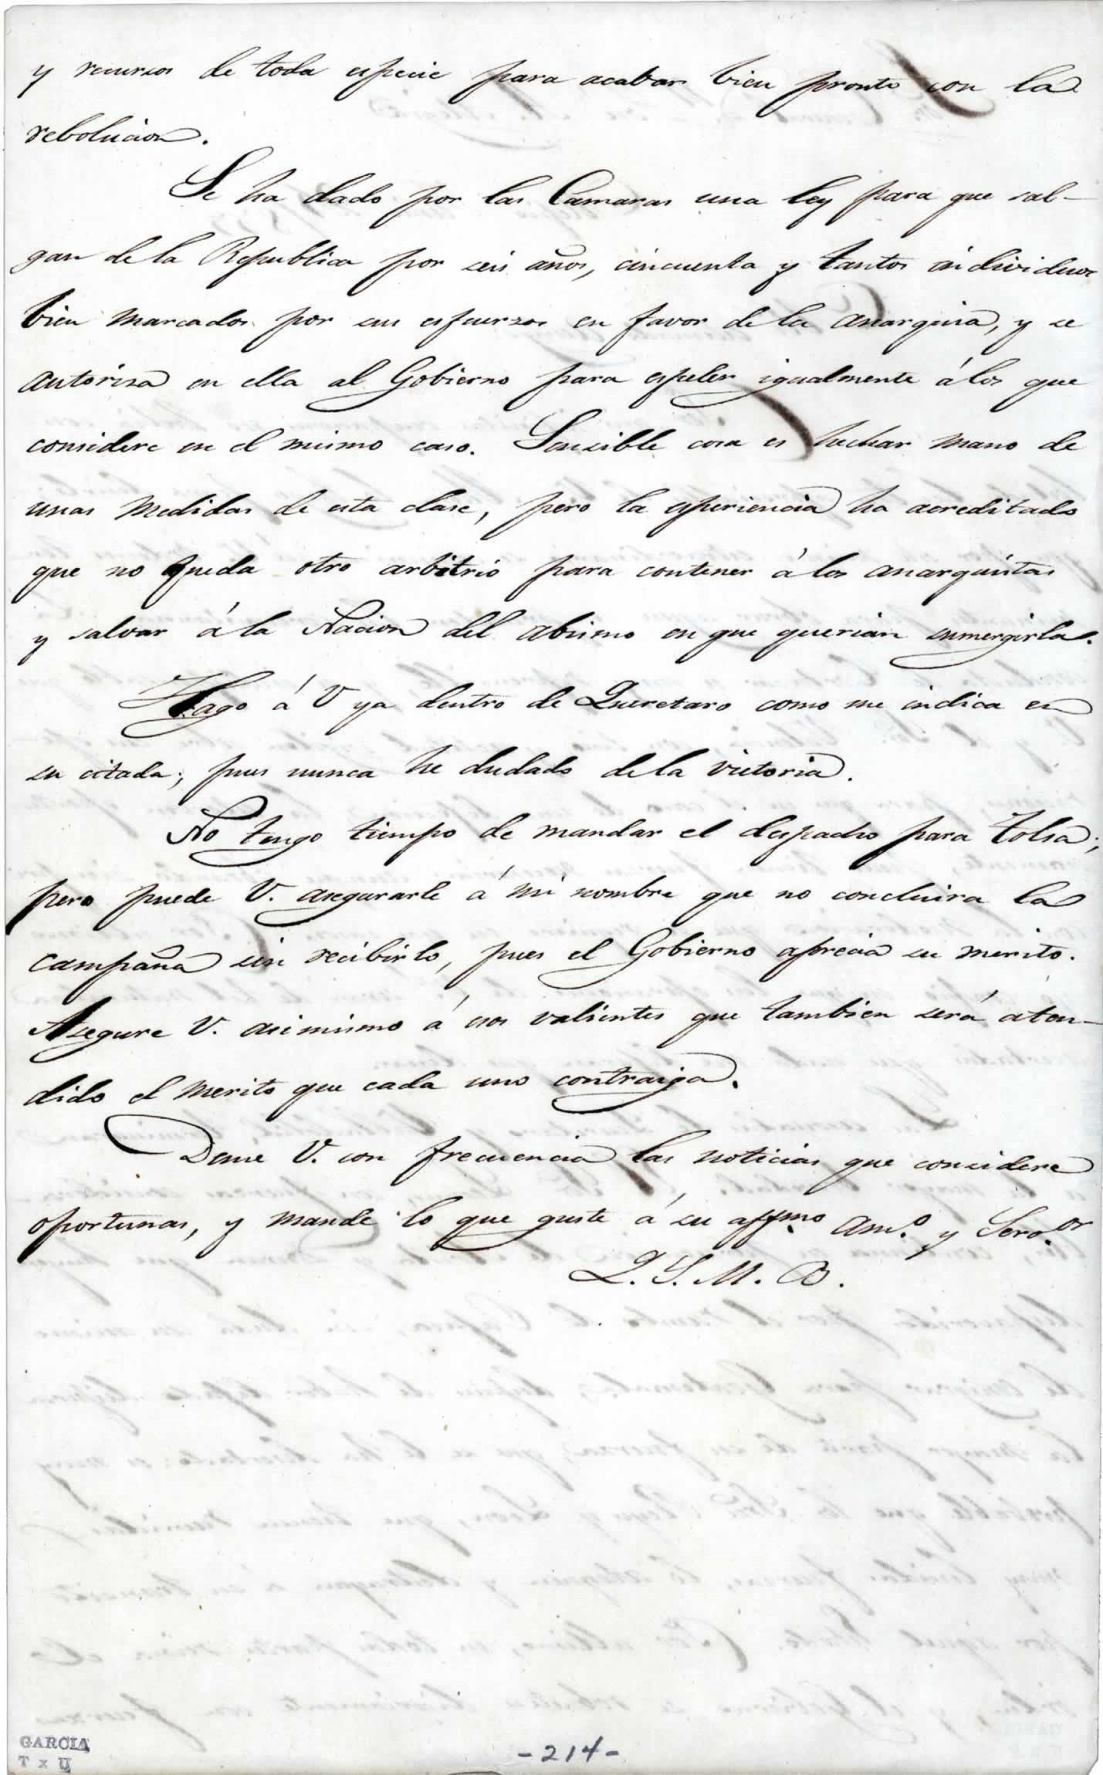 y recursos de toda especie para acabar bien pronto con la
rebolucion.
Se ha dado por las Camaras una ley para que sal-
gan de la Republica por seis años, cincuenta y tantos individuos
bien marcados por sus esfuerzos en favor de la anarquia, y se
autorisa en ella al Gobierno para espeler igualmente á los que
considere en el mismo caso. Sensible cosa es hechar mano de
unas medidas de esta clase, pero la esperiencia ha acreditado
que no queda otro arbitrio para contener á los anarquistas
y salvar á la Nacion del abismo en que querian sumergirla.
Hago á V ya dentro de Queretaro como me indica en
su citada; pues nunca he dudado de la victoria.
No tengo tiempo de mandar el despacho para Tolsa;
pero puede V. asegurarle á mi nombre que no concluira la
campaña sin recibirlo, pues el Gobierno aprecia su merito.
Asegure V. asimismo á esos valientes que tambien será aten-
dido el merito que cada uno contraiga.
Deme V. con frecuencia las noticias que considere
oportunas, y mande lo que guste á su affmo. Am.º y Servor.
Q. S. M. B.
GARCIA
T x U
-214-